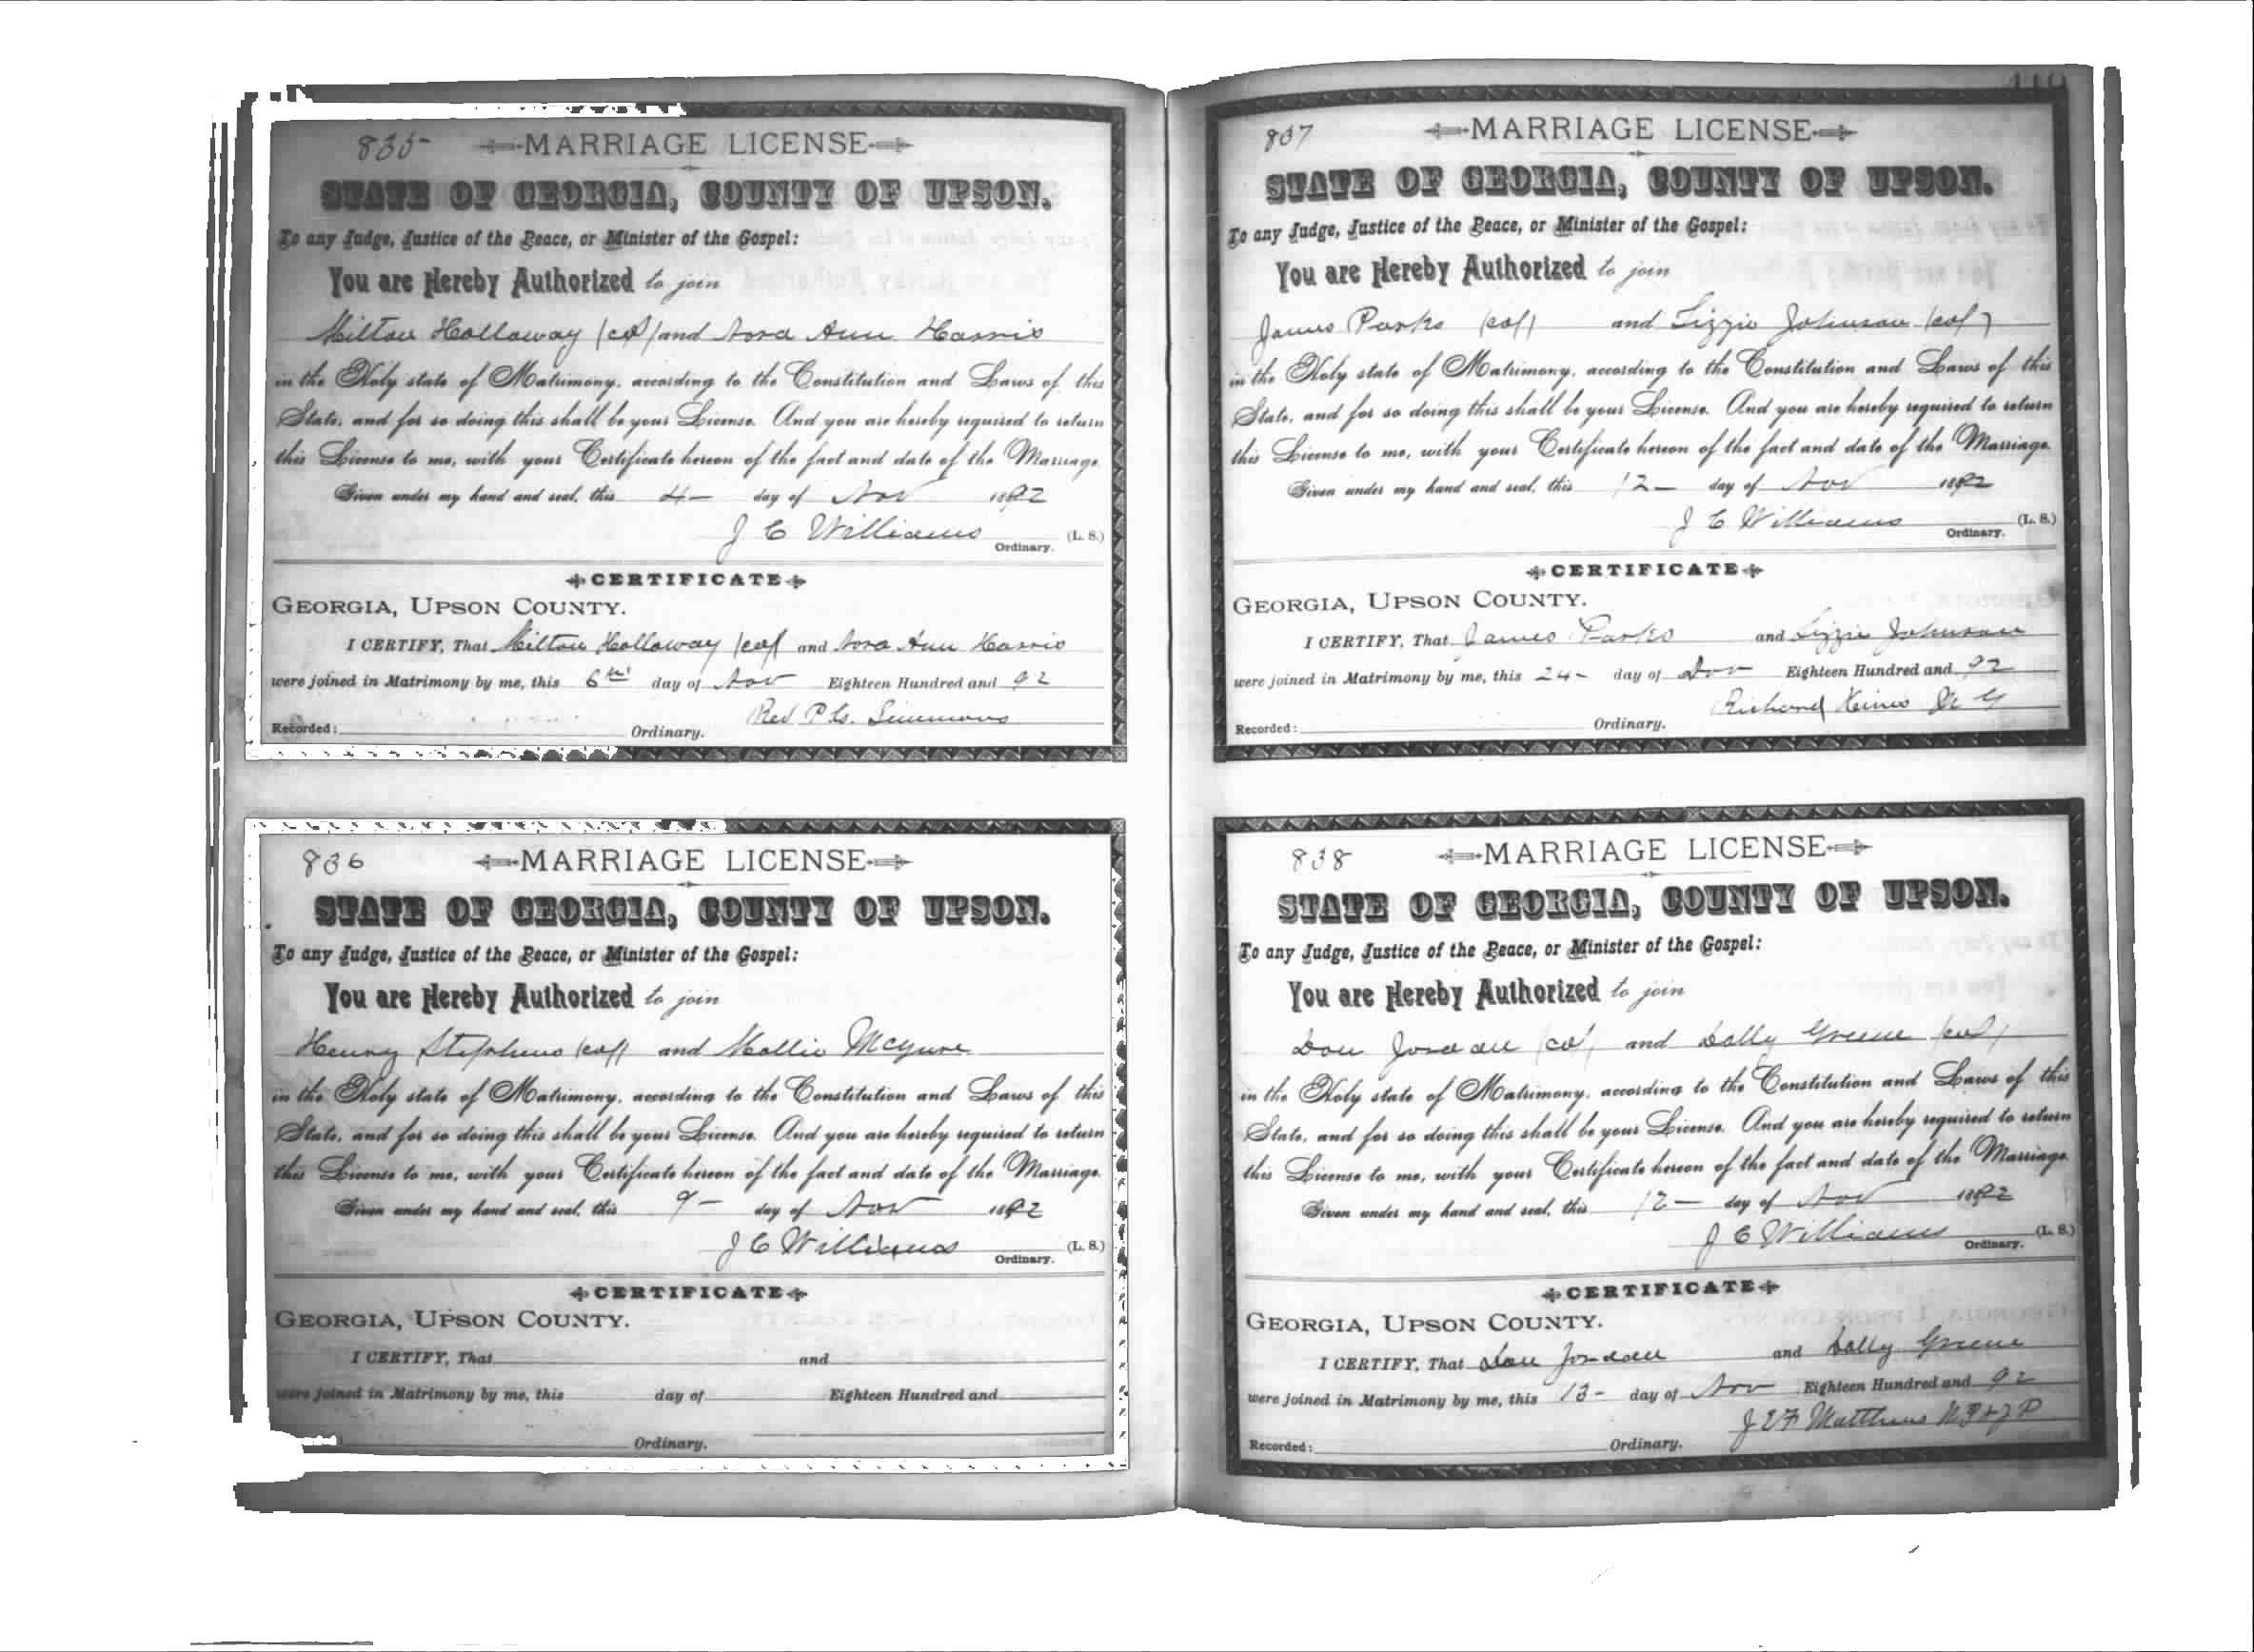 835
MARRIAGE LICENSE
STATE OF GEORGIA, COUNTY OF UPSON.
To any Judge, Justice of the Peace, or Minister of the Gospel:
You are Hereby Authorized to join
Milton Holloway (col) and Nora Ann Harris
in the Holy state of Matrimony, according to the Constitution and Laws of this
State, and for so doing this shall be your License. And you are hereby required to return
this License to me, with your Certificate hereon of the fact and date of the Marriage.
Given under my hand and seal, this 4 - day of Nov 1892
J C Williams (L. S.)
Ordinary.
CERTIFICATE
GEORGIA, UPSON COUNTY.
I CERTIFY, That Milton Holloway (col) and Nora Ann Harris
were joined in Matrimony by me, this 6th day of Nov Eighteen Hundred and 92
Rev P G. Simmons
Recorded: Ordinary.
836
MARRIAGE LICENSE
STATE OF GEORGIA, COUNTY OF UPSON.
To any Judge, Justice of the Peace, or Minister of the Gospel:
You are Hereby Authorized to join
Henry Stephens (col) and Mollie McGuire
in the Holy state of Matrimony, according to the Constitution and Laws of this
State, and for so doing this shall be your License. And you are hereby required to return
this License to me, with your Certificate hereon of the fact and date of the Marriage.
Given under my hand and seal, this 9 - day of Nov 1892
J C Williams (L. S.)
Ordinary.
CERTIFICATE
GEORGIA, UPSON COUNTY.
I CERTIFY, That and
were joined in Matrimony by me, this day of Eighteen Hundred and
Ordinary.
837
MARRIAGE LICENSE
STATE OF GEORGIA, COUNTY OF UPSON.
To any Judge, Justice of the Peace, or Minister of the Gospel:
You are Hereby Authorized to join
James Parks (col) and Lizzie Johnson (col)
in the Holy state of Matrimony, according to the Constitution and Laws of this
State, and for so doing this shall be your License. And you are hereby required to return
this License to me, with your Certificate hereon of the fact and date of the Marriage.
Given under my hand and seal, this 12 - day of Nov 1892
J C Williams (L. S.)
Ordinary.
CERTIFICATE
GEORGIA, UPSON COUNTY.
I CERTIFY, That James Parks and Lizzie Johnson
were joined in Matrimony by me, this 24 - day of Nov Eighteen Hundred and 92
Richard Hines
Recorded: Ordinary.
838
MARRIAGE LICENSE
STATE OF GEORGIA, COUNTY OF UPSON.
To any Judge, Justice of the Peace, or Minister of the Gospel:
You are Hereby Authorized to join
Dan Jordan (col) and Dolly Greene (col)
in the Holy state of Matrimony, according to the Constitution and Laws of this
State, and for so doing this shall be your License. And you are hereby required to return
this License to me, with your Certificate hereon of the fact and date of the Marriage.
Given under my hand and seal, this 12 - day of Nov 1892
J C Williams (L. S.)
Ordinary.
CERTIFICATE
GEORGIA, UPSON COUNTY.
I CERTIFY, That Dan Jordan and Dolly Greene
were joined in Matrimony by me, this 13 - day of Nov Eighteen Hundred and 92
J E F Matthews N P & J P
Recorded: Ordinary.